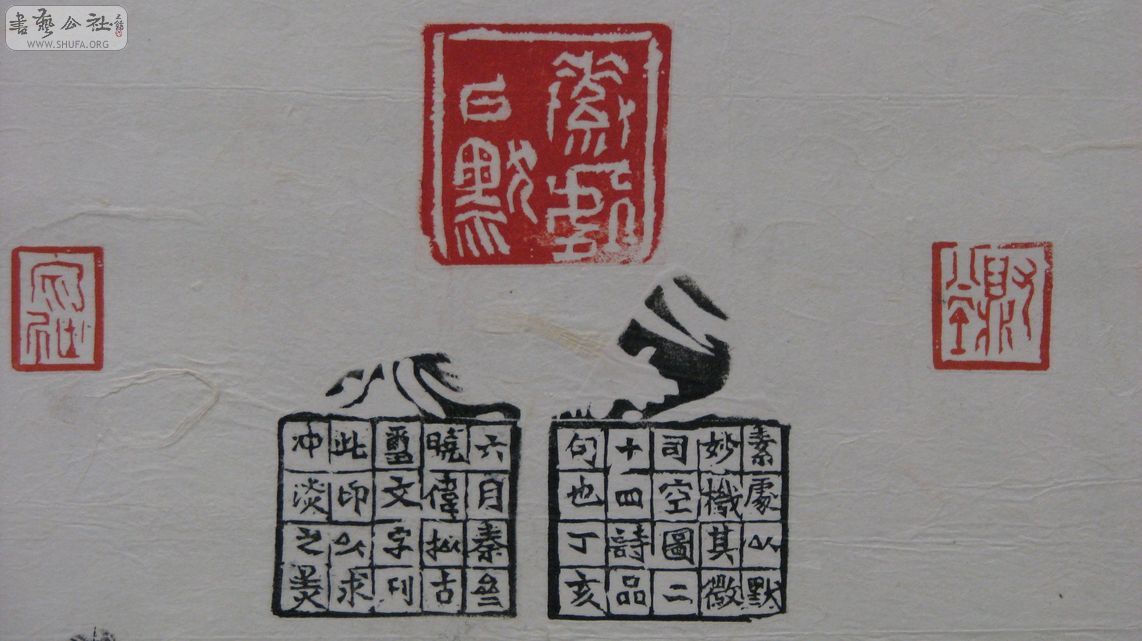 書藝公社
WWW.SHUFA.ORG
素處
以默
素處以默
妙機其微
司空圖二
十四詩品
句也丁亥
六月秦叁
曉偉拟古
璽文字刊
此印以求
冲淡之美